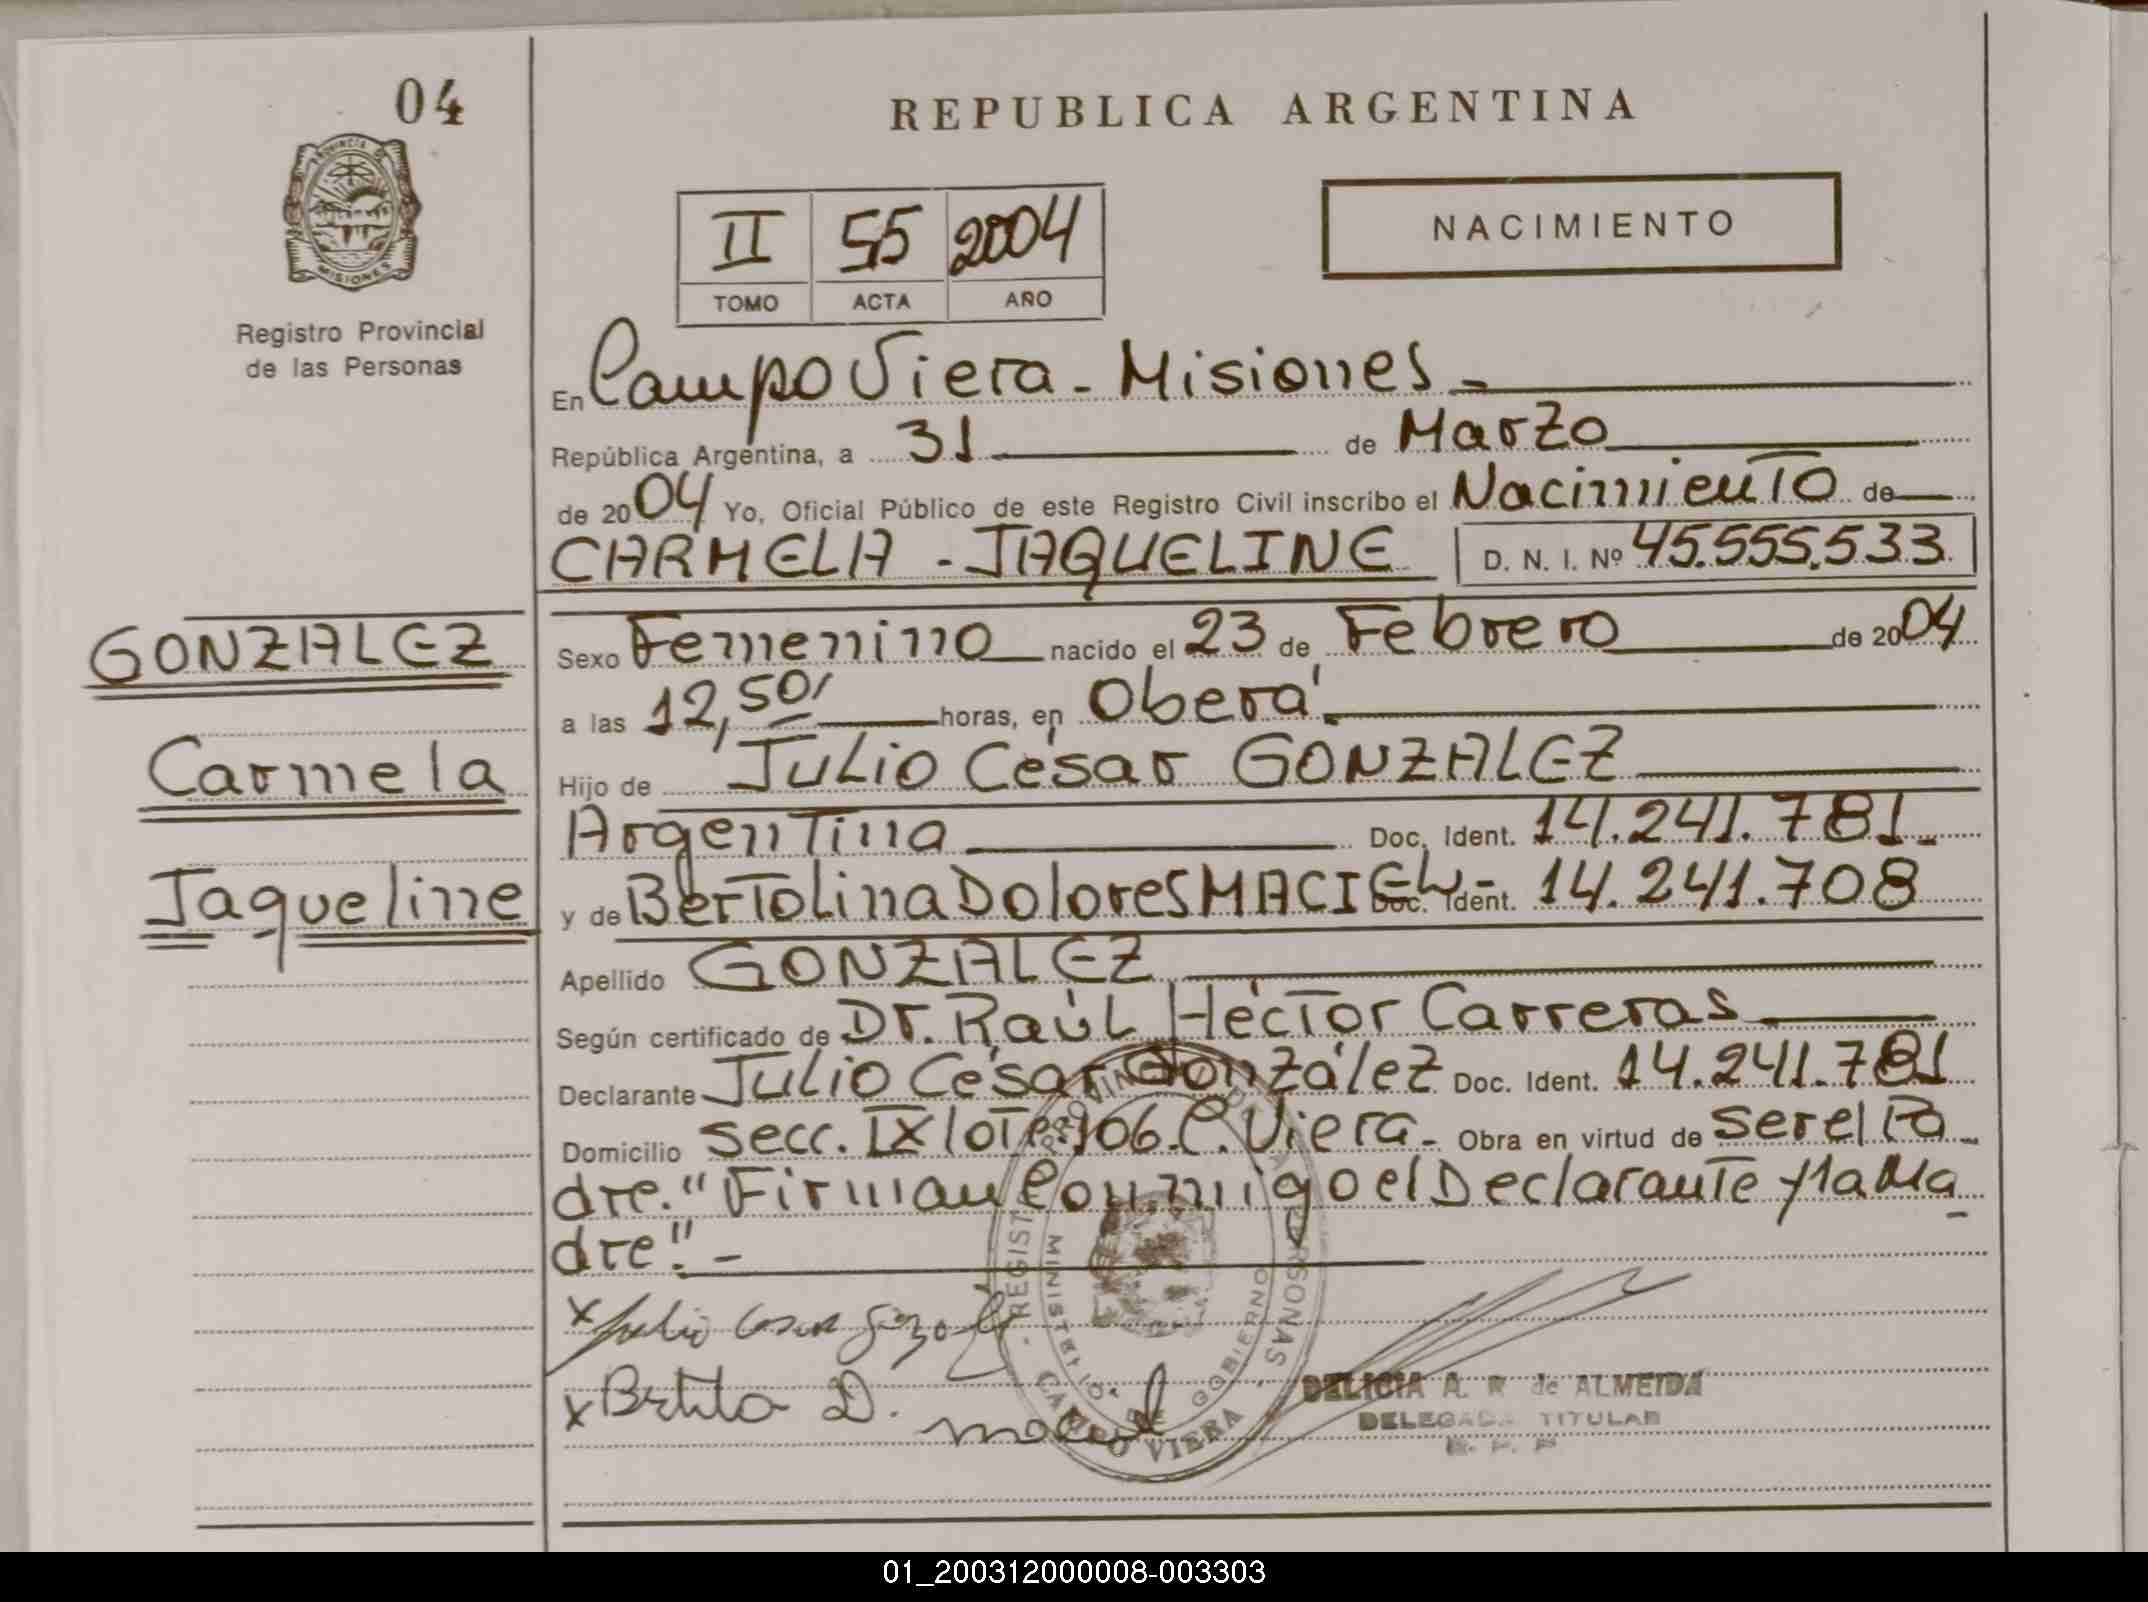 04
PROVINCIA DE
MISIONES
Registro Provincial
de las Personas
GONZALEZ
Carmela
Jaqueline
REPUBLICA ARGENTINA
II 55 2004
TOMO ACTA AÑO
NACIMIENTO
En Campo Viera - Misiones -
República Argentina, a 31 de Marzo
de 2004 Yo, Oficial Público de este Registro Civil inscribo el Nacimiento de
CARMELA - JAQUELINE D. N. I. Nº 45.555.533
Sexo Femenino nacido el 23 de Febrero de 2004
a las 12,50' horas, en Oberá.
Hijo de Julio César GONZALEZ
Argentina Doc. Ident. 14.241.781.-
y de Bertolina Dolores MACIEL- Doc. Ident. 14.241.708
Apellido GONZALEZ
Según certificado de Dr. Raúl Héctor Carreras
Declarante Julio César González Doc. Ident. 14.241.781
Domicilio secc. IX lote 106. C. Viera.- Obra en virtud de ser el Pa-
dre. "Firman Conmigo el Declarante y la Ma-
dre". -
x Julio Cesar
x D.
REGIST
PERSONAS
MINISTERIO DE GOBIERNO
CAMPO VIERA
DELICIA A. R. de ALMEIDA
DELEGADA TITULAR
01_200312000008-003303